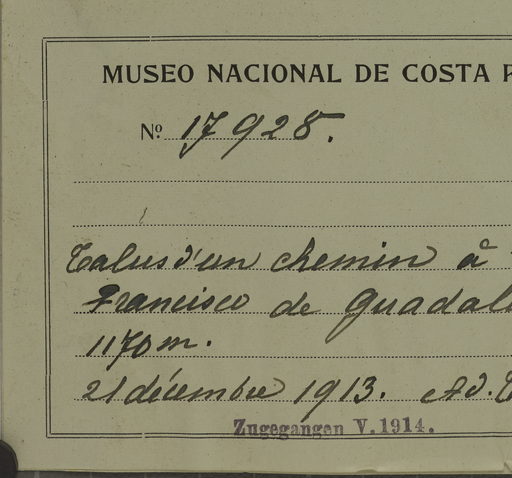 MUSEO NACIONAL DE COSTA
Nº 17928.
Talus d'un chemin à
Francisco de Guadal
1170 m.
21 décembre 1913. Ad.
Zugegangen V. 1914.